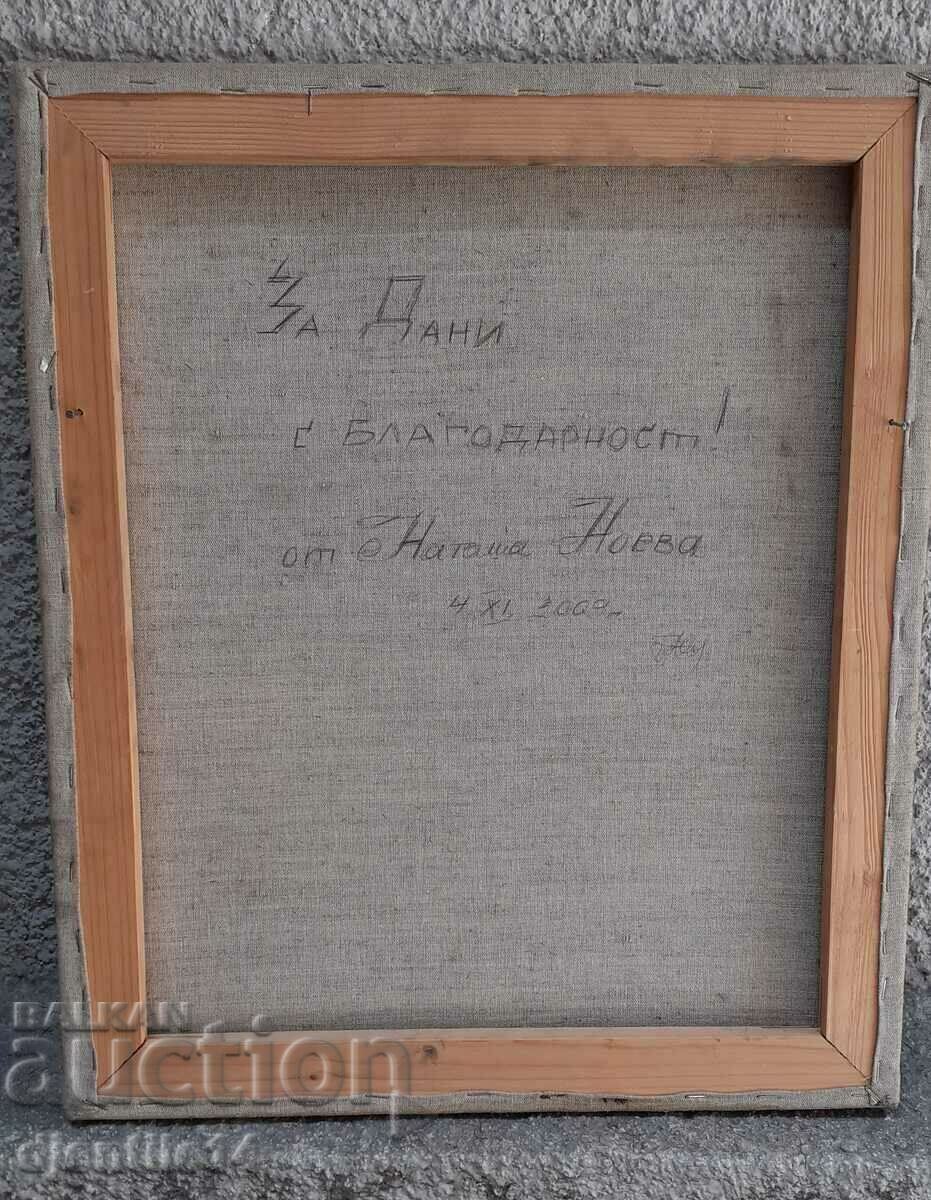 За Дани
с Благодарност!
от Наташа Ноева
4. XI. 2009г.
BALKAN
auction
djentile14